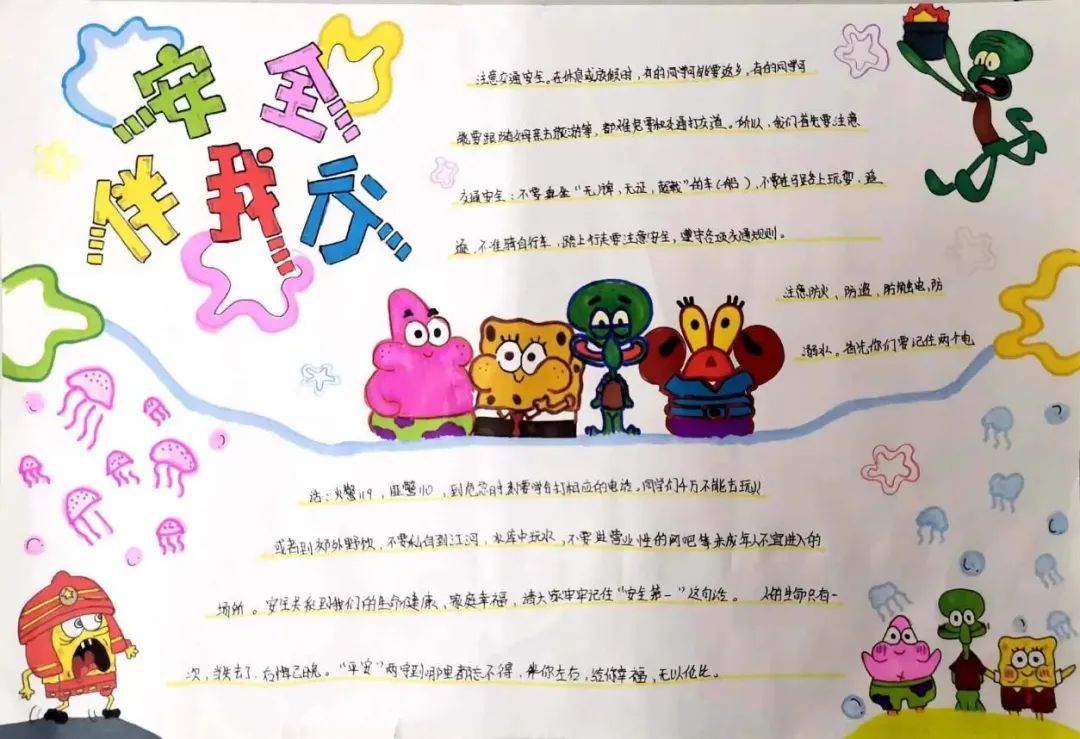 安全
伴我行
注意交通安全。在休息或放假时，有的同学可能要返乡，有的同学可
能要跟随父母亲去旅游等，都难免要和交通打交道。所以，我们首先要注意
交通安全：不要乘坐“无牌，无证，超载”的车（船），不要在马路上玩耍，追
逐，不准骑自行车，路上行走要注意安全，遵守各项交通规则。
注意防火，防盗，防触电，防
溺水。首先你们要记住两个电
话：火警119，匪警110，到危急时刻要学会打相应的电话。同学们千万不能去玩火
或者到郊外野炊，不要私自到江河，水库中玩水，不要进营业性的网吧等未成年人不宜进入的
场所。安全关系到我们的生命健康，家庭幸福，请大家牢牢记住“安全第一”这句话。 人的生命只有一
次，当失去了，后悔已晚。“平安”两字到哪里都忘不得，伴你左右，给你幸福，无以伦比。